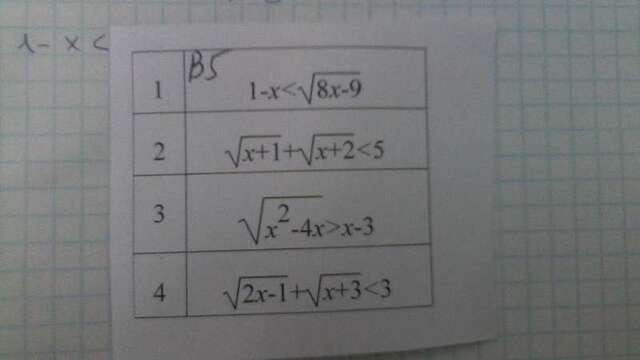 1-x<
B5
1 1-x<√8x-9
2 √x+1+√x+2<5
3 √x²-4x>x-3
4 √2x-1+√x+3<3